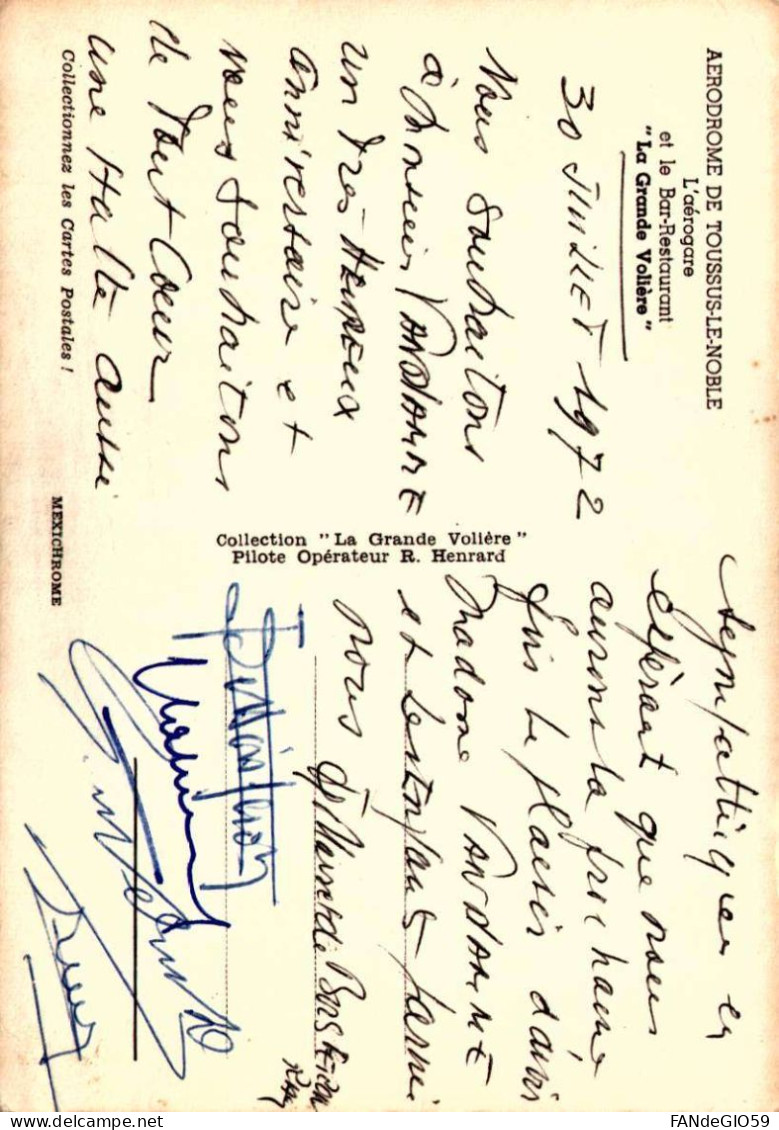 AERODROME DE TOUSSUS-LE-NOBLE
L'aérogare
et le Bar-Restaurant
"La Grande Volière"
30 JUILLET 1972
Nous Souhaitons
à Monsieur VANDAMME
un Très Heureux
anniversaire et
nous Souhaitons
de Tout Coeur
une Halte aussi
Collectionnez les Cartes Postales !
MEXICHROME
Collection "La Grande Volière"
Pilote Opérateur R. Henrard
sympathique en
espérant que nous
aurons la prochaine
fois le plaisir d'avoir
Madame VANDAMME
et les enfants parmi
nous
FANdeGIO59